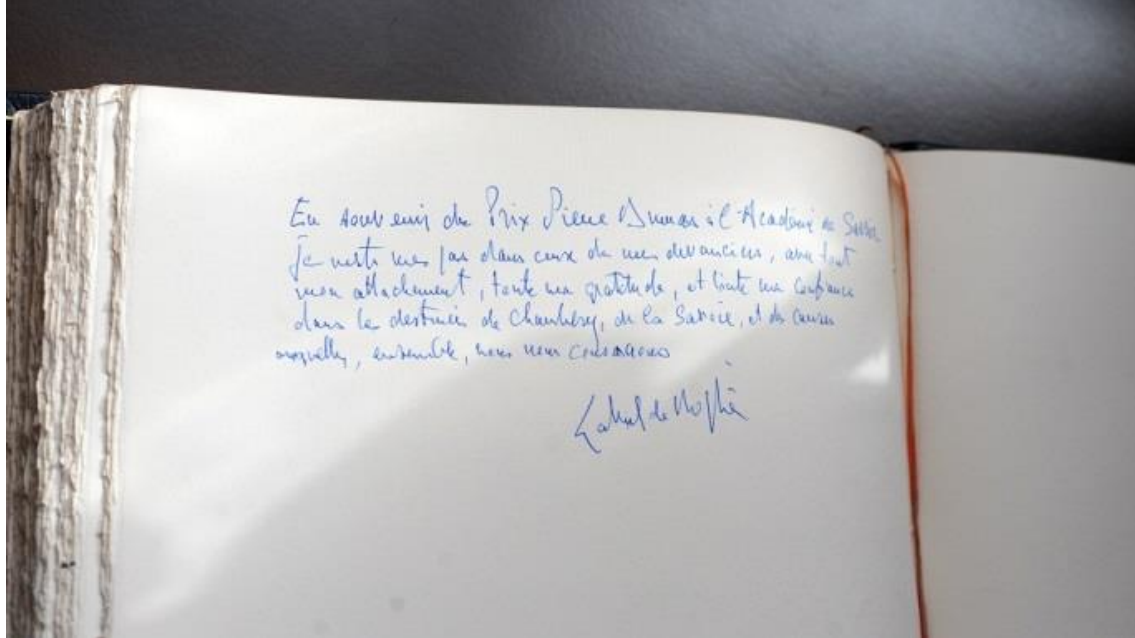 En souvenir du Prix Pierre Dumas à l'Académie de Savoie
Je mets mes pas dans ceux de mes devanciers, avec tout
mon attachement, toute ma gratitude, et toute ma confiance
dans les destinées de Chambéry, de la Savoie, et des causes
auxquelles, ensemble, nous nous consacrons